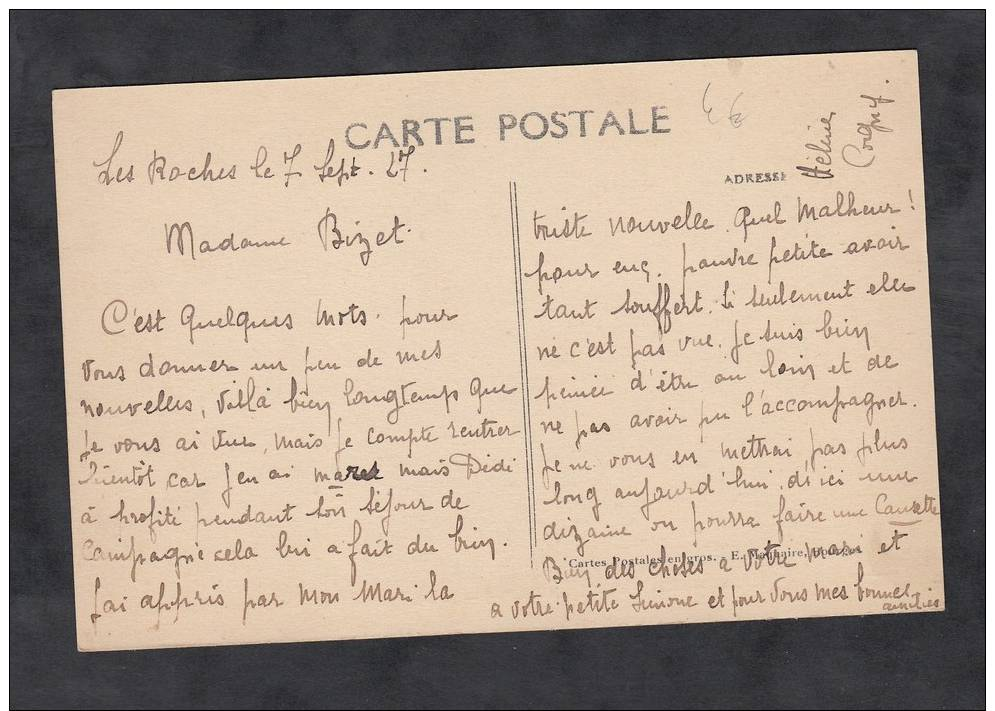 CARTE POSTALE
Les Roches le 7 Sept. 27.
Madame Bizet.
C'est quelques mots. pour
vous donner un peu de mes
nouvelles, Voilà bien longtemps que
je vous ai vue, mais je compte rentrer
bientôt car j'en ai marre mais Dédé
à profité pendant son séjour de
Campagne cela lui a fait du bien.
J'ai appris par mon Mari la
ADRESSE
triste nouvelle. Quel Malheur!
pour eux. pauvre petite avoir
tant souffert. Si seulement elle
ne c'est pas vue. Je suis bien
peinée d'être au loin et de
ne pas avoir pu l'accompagner.
Je ne vous en mettrai pas plus
long aujourd'hui, d'ici une
dizaine on pourra faire une Causette
Cartes Postales en gros. - E. Bourges
Bien des choses a votre mari et
a votre petite Simone et pour Vous mes bonnes
amitiés
Hélène